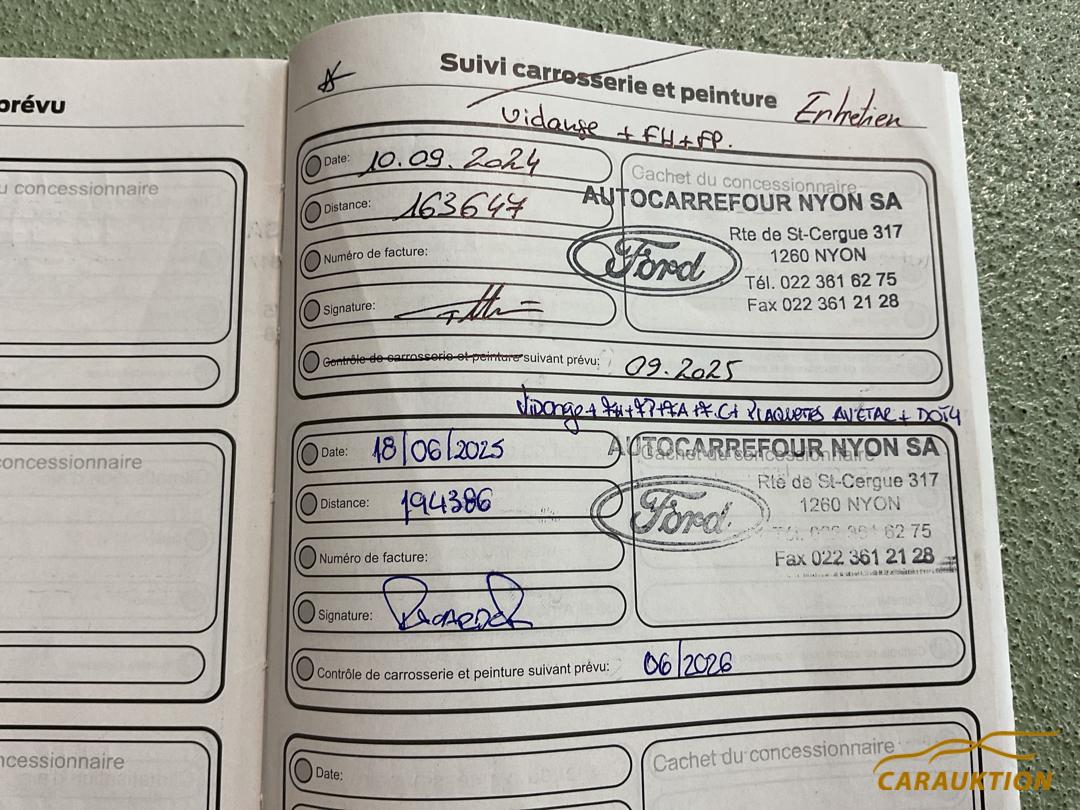 prévu
u concessionnaire
oncessionnaire
ncessionnaire
Suivi carrosserie et peinture Entretien
Vidange + FH + FP.
Date: 10.09.2024
Distance: 163647
Numéro de facture:
Signature:
Cachet du concessionnaire
AUTOCARREFOUR NYON SA
Rte de St-Cergue 317
1260 NYON
Ford
Tél. 022 361 62 75
Fax 022 361 21 28
Contrôle de carrosserie et peinture suivant prévu: 09.2025
Vidange + FH + FP + FA + F.C + PLAQUETES AV ETAR + DOT4
Date: 18/06/2025
Distance: 194386
Numéro de facture:
Signature:
Cachet du concessionnaire
AUTOCARREFOUR NYON SA
Rte de St-Cergue 317
1260 NYON
Ford
Tél. 022 361 62 75
Fax 022 361 21 28
Contrôle de carrosserie et peinture suivant prévu: 06/2026
Date:
Distance:
Cachet du concessionnaire
CARAUKTION